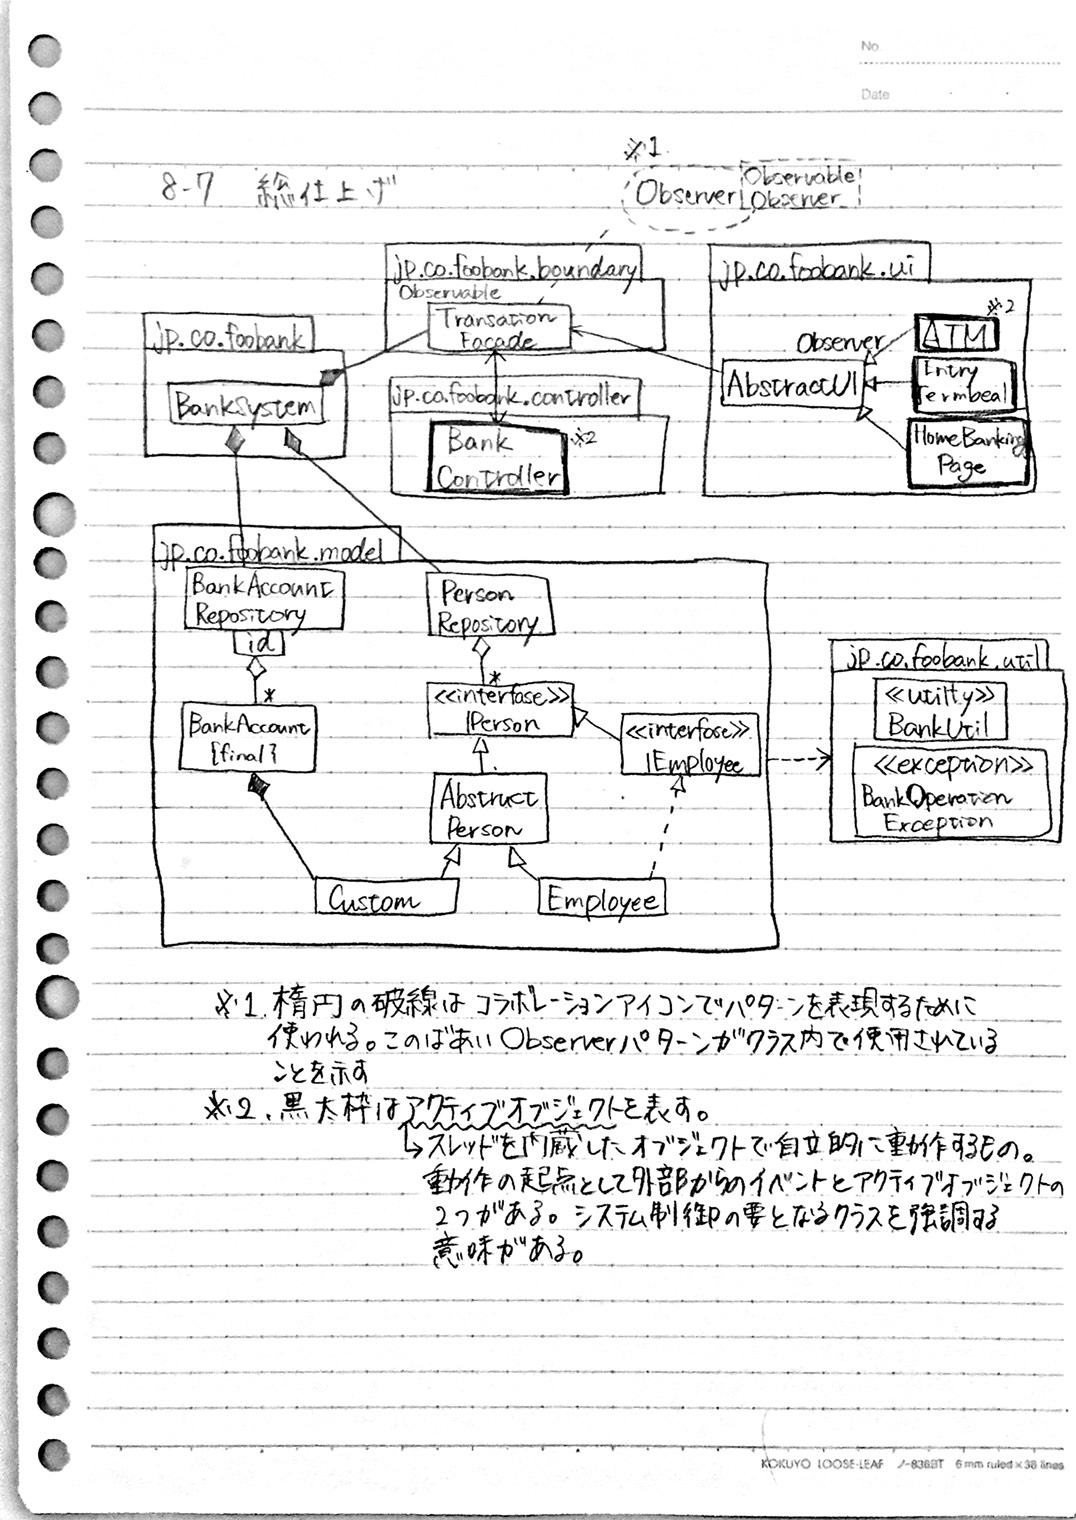 No.
Date
※1
8-7 総仕上げ
Observer
Observable
Observer
jp.co.foobank.boundary
Observable
Transation
Facade
jp.co.foobank.ui
※2
ATM
Observer
AbstractUI
Entry
Termbeal
HomeBanking
Page
jp.co.foobank
BankSystem
jp.co.foobank.controller
Bank
Controller
※2
jp.co.foobank.model
BankAccount
Repository
id
*
BankAccount
{final}
Person
Repository
*
<<interfase>>
IPerson
<<interfase>>
IEmployee
Abstruct
Person
Custom
Employee
jp.co.foobank.util
<<utilty>>
BankUtil
<<exception>>
BankOperation
Exception
※1. 楕円の破線はコラボレーションアイコンでパターンを表現するために
使われる。このばあいObserverパターンがクラス内で使用されている
ことを示す
※2. 黒太枠はアクティブオブジェクトを表す。
↳スレッドを内蔵したオブジェクトで自立的に動作するもの。
動作の起点として外部からのイベントとアクティブオブジェクトの
2つがある。システム制御の要となるクラスを強調する
意味がある。
KOKUYO LOOSE-LEAF ノ-836BT 6 mm ruled×38 lines